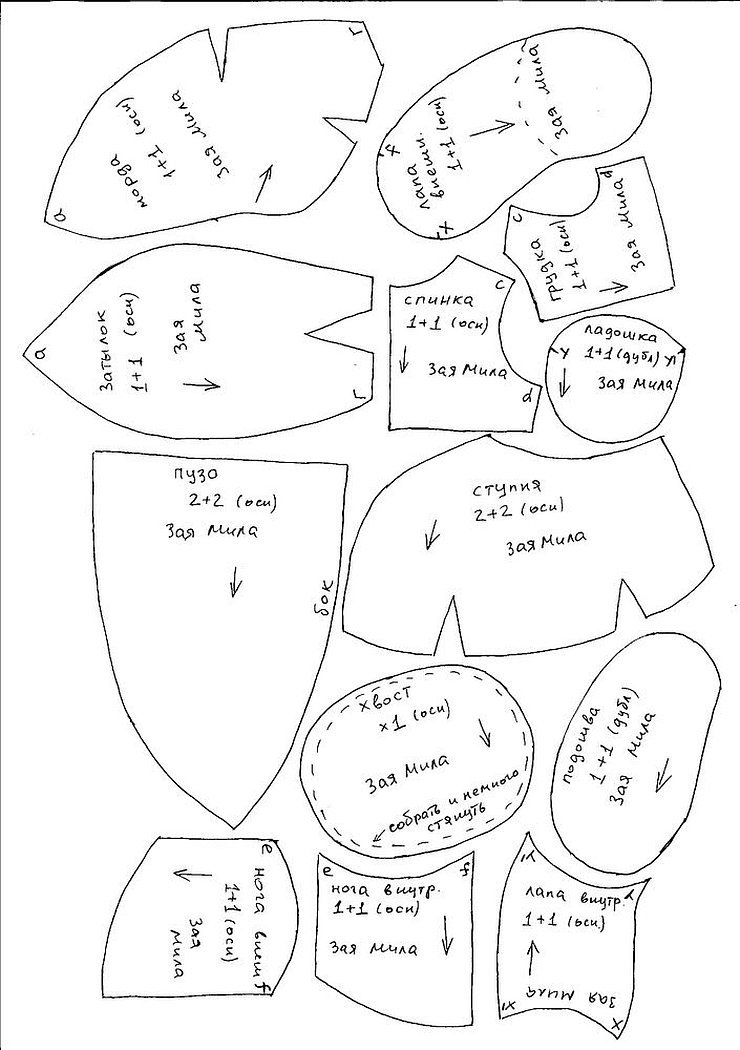 г
морда
1+1 (оси)
Зая Мила
а
лапа
внешн.
1+1 (оси)
Зая Мила
x
'x
c
d
грудка
1+1 (оси)
Зая Мила
а
Затылок
1+1 (оси)
Зая
Мила
г
спинка
1+1 (оси)
Зая Мила
c
d
ладошка
y 1+1 (дубл) y'
Зая Мила
пузо
2+2 (оси)
Зая Мила
бок
ступня
2+2 (оси)
Зая Мила
хвост
x1 (оси)
Зая Мила
собрать и немного
стянуть
подошва
1+1 (дубл)
Зая Мила
e
нога внеш
1+1 (оси)
Зая
Мила
f
e
f
нога внутр.
1+1 (оси)
Зая Мила
y'
y
лапа внутр.
1+1 (оси)
Зая Мила
x'
x